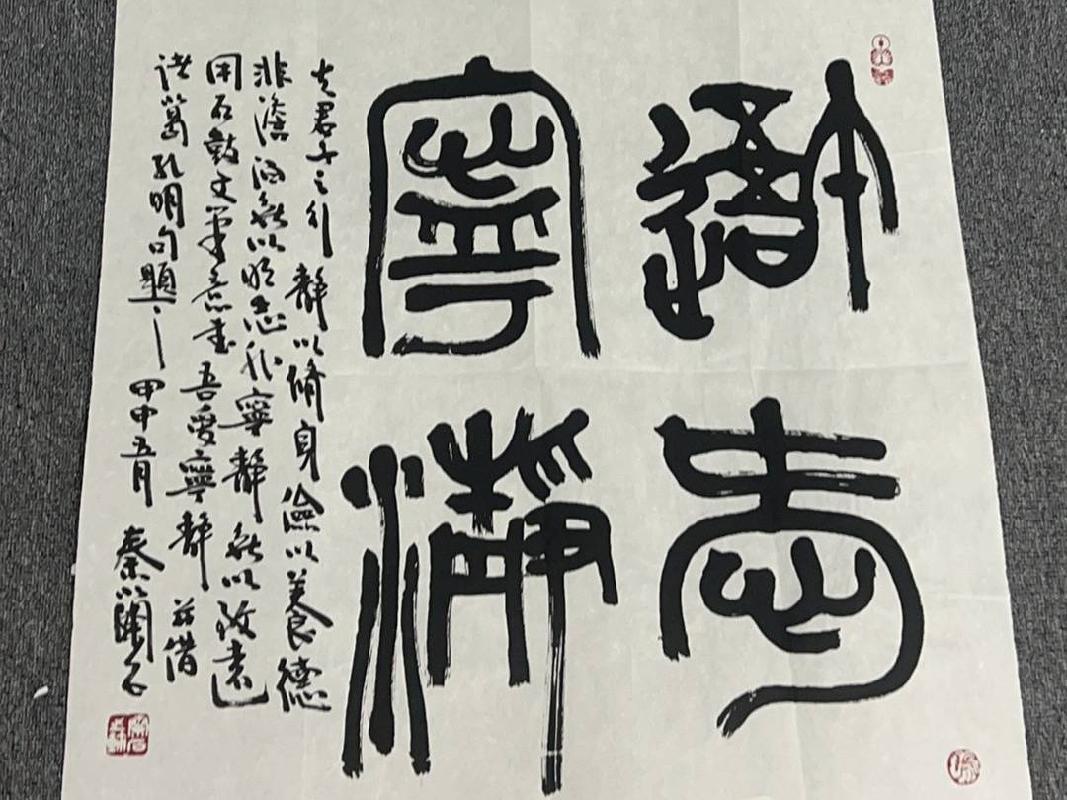 吾愛
寧靜
夫君子之行靜以脩身儉以養德
非澹泊無以明志非寧靜無以致遠
用石鼓文筆意書吾愛寧靜茲借
諸葛孔明句題之甲申五月秦